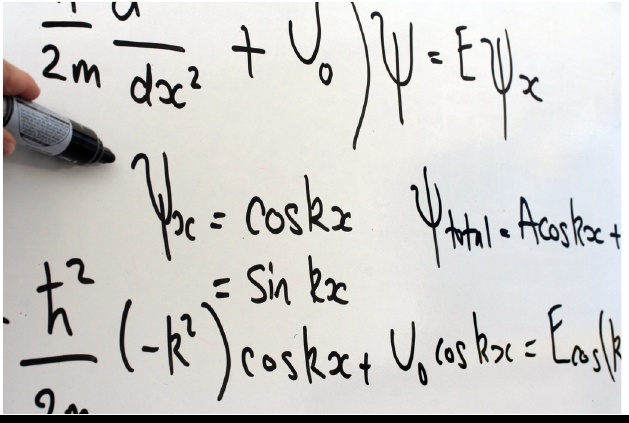 2m dx² + U₀ ) ψ = E ψₓ
ψₓ = coskx ψtotal = Acoskx +
= sin kx
ħ² (-k²) coskx + U₀ coskx = E cos(k
2m